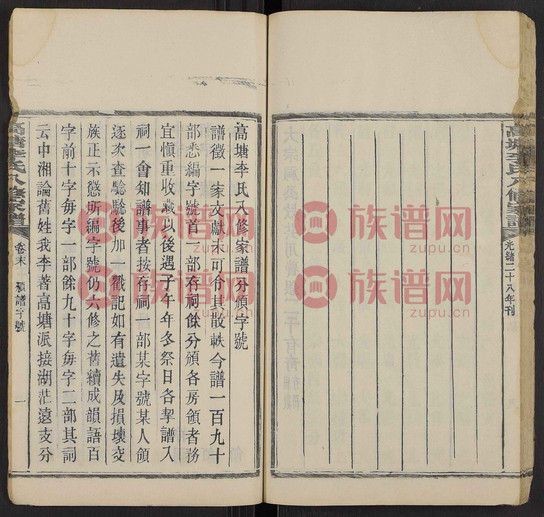 高塘李氏八修家譜
光緒二十八年刊
高塘李氏八修家譜分頒字號
譜徵一家文獻未可令其散軼今譜一百九十
部悉編字號首一部存祠餘分頒各房領者務
宜慎重收藏以後遇子午年冬祭日各挈譜入
祠一會知譜事者按存祠一部某字號某人領
逐次查驗驗後加一戳記如有遺失及損壞交
族正示懲所編字號仍六修之舊續成韻語百
字前十字每字一部餘九十字每字二部其詞
云中湘論舊姓我李著高塘派接湖茫遠支分
高塘李氏八修家譜
卷末
領譜字號
一
族谱网
zupu.cn
族谱网
zupu.cn
族谱网
zupu.cn
族谱网
zupu.cn